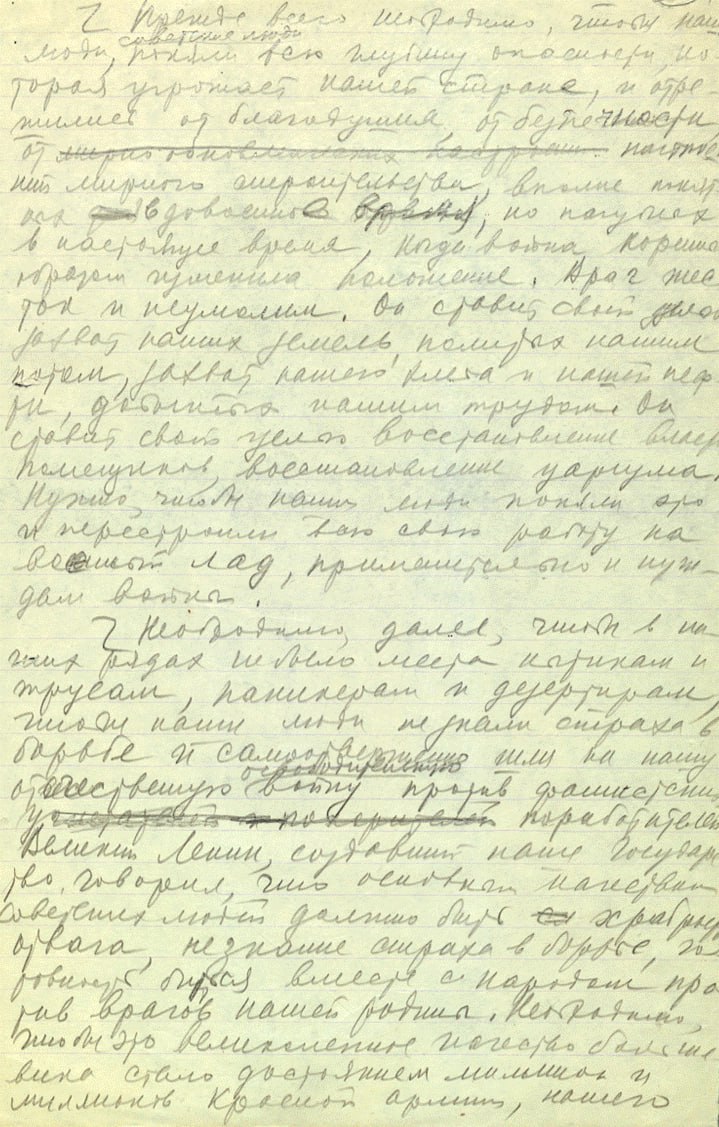 Прежде всего необходимо, чтобы наши
советские люди
люди, поняли всю глубину опасности, ко-
торая угрожает нашей стране, и отре-
шились от благодушия, от беспечности
от настрое-
ний мирного строительства, вполне понят-
ных в довоенное время, но пагубных
в настоящее время, когда война коренным
образом изменила положение. Враг жес-
ток и неумолим. Он ставит своей целью
захват наших земель, политых нашим
потом, захват нашего хлеба и нашей неф-
ти, добытых нашим трудом. Он
ставит своей целью восстановление власти
помещиков, восстановление царизма.
Нужно, чтобы наши люди поняли это
и перестроили всю свою работу на
военный лад, применительно к нуж-
дам войны.
Необходимо, далее, чтобы в на-
ших рядах не было места нытикам и
трусам, паникерам и дезертирам,
чтобы наши люди не знали страха в
борьбе и самоотверженно шли на нашу
освободительную
отечественную войну против фашистских
поработителей
Великий Ленин, создавший наше государс
тво, говорил, что основным качеством
советских людей должно быть храбрость
отвага, незнание страха в борьбе, го-
товность биться вместе с народом про
тив врагов нашей родины. Необходимо,
чтобы это великолепное качество больше
вика стало достоянием миллионов и
миллионов Красной армии, нашего